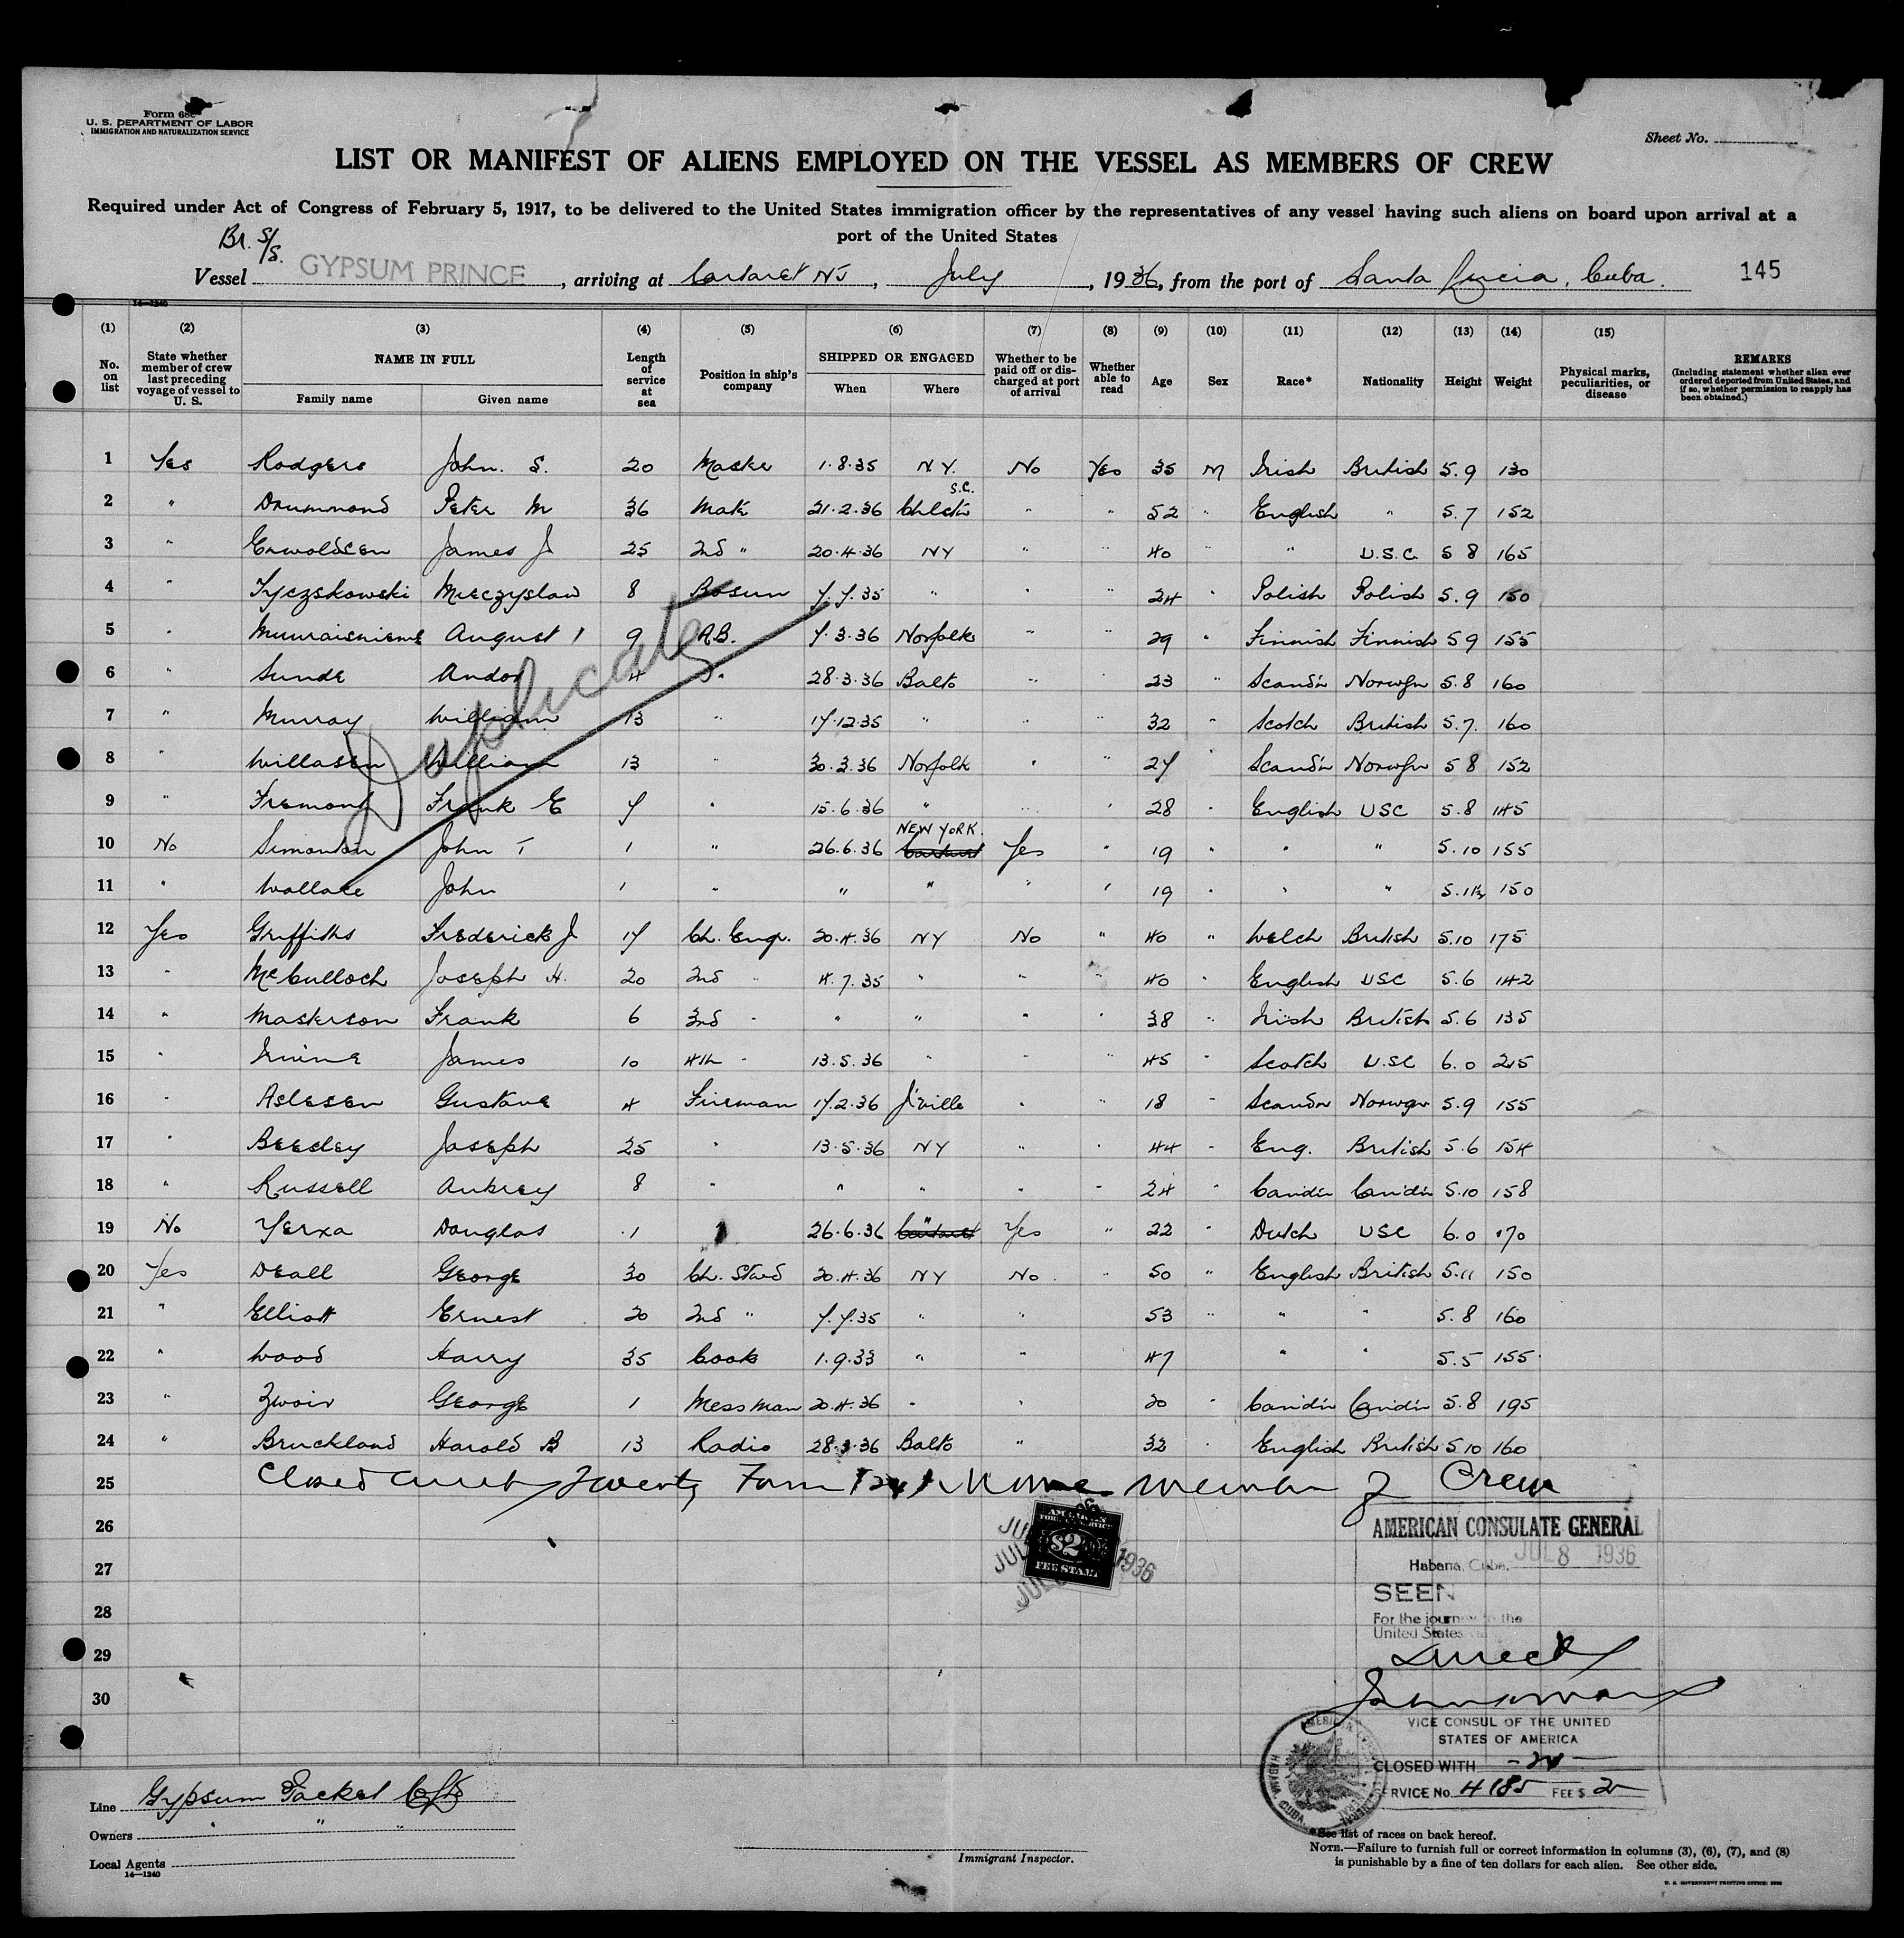 Form 680
U. S. DEPARTMENT OF LABOR
IMMIGRATION AND NATURALIZATION SERVICE
Sheet No.
LIST OR MANIFEST OF ALIENS EMPLOYED ON THE VESSEL AS MEMBERS OF CREW
Required under Act of Congress of February 5, 1917, to be delivered to the United States immigration officer by the representatives of any vessel having such aliens on board upon arrival at a
port of the United States
Br. S/S.
Vessel GYPSUM PRINCE, arriving at Cartaret NJ, July, 1936, from the port of Santa Lucia, Cuba. 145
14—1240
(1) (2) (3) (4) (5) (6) (7) (8) (9) (10) (11) (12) (13) (14) (15)
No. on list
State whether member of crew last preceding voyage of vessel to U. S.
NAME IN FULL
Family name Given name
Length of service at sea
Position in ship's company
SHIPPED OR ENGAGED
When Where
Whether to be paid off or discharged at port of arrival
Whether able to read
Age Sex Race* Nationality Height Weight
Physical marks, peculiarities, or disease
REMARKS
(Including statement whether alien ever ordered deported from United States, and if so, whether permission to reapply has been obtained.)
1 Yes Rodgers John. S. 20 Master 1.8.35 N.Y. No Yes 35 M Irish British 5.9 130
S.C.
2 " Drummond Peter M 36 Mate 21.2.36 " " 52 " English " 5.7 152
3 " James J 25 2nd " 20.4.36 NY " " 40 " " U.S.C. 5 8 165
4 " Tyczskowski Mieczyslaw 8 Bosun 7.7.35 " " " 24 " Polish Polish 5.9 150
5 " August 9 A.B. 7.3.36 Norfolk " " 29 " Finnish Finnish 5 9 155
6 " Sunde Andor 4 " 28.3.36 Balto " " 23 " Scandn Norwgn 5.8 160
7 " Murray William 13 " 17.12.35 " " " 32 " Scotch British 5.7. 160
8 " Willasen William 13 " 30.3.36 Norfolk " " 27 " Scandn Norwgn 5 8 152
9 " Fremont Frank E 7 " 15.6.36 " " " 28 " English USC 5.8 145
NEW YORK.
10 No Simonton John T 1 " 26.6.36 Cartaret Yes " 19 " " " 5.10 155
11 " Wallace John 1 " " " " " 19 " " " 5.11½ 150
12 Yes Griffiths Frederick J 17 Ch. Engr. 20.4.36 NY No " 40 " Welch British 5.10 175
13 " McCulloch Joseph H. 20 2nd " 4.7.35 " " " 40 " English USC 5.6 142
14 " Masterson Frank 6 3rd " " " " " 38 " Irish British 5.6 135
15 " Irvine James 10 4th " 13.5.36 " " " 45 " Scotch U.SC 6.0 215
16 " Aslesen Gustave 4 Fireman 17.2.36 J'ville " " 18 " Scandn Norwgn 5.9 155
17 " Beesley Joseph 25 " 13.5.36 NY " " 44 " Eng. British 5.6 154
18 " Russell Aubrey 8 " " " " " 24 " Candn Candn 5.10 158
19 No Yerxa Douglas 1 " 26.6.36 " Cartaret Yes " 22 " Dutch USC 6.0 170
20 Yes Deall George 30 Ch. Stwd 20.4.36 NY No " 50 " English British 5.11 150
21 " Elliott Ernest 20 2nd " 7.7.35 " " 53 " " " 5.8 160
22 " Wood Harry 35 Cook 1.9.33 " " 47 " " 5.5 155
23 " Zwoir George 1 Messman 20.4.36 " " 20 " Candn Candn 5.8 195
24 " Bruckland Harold B 13 Radio 28.3.36 Balto " 32 " English British 5 10 160
Duplicate
25 Closed Twenty Four member of Crew
26
27
28
29
30
AMERICAN FOREIGN SERVICE
$2
FEE STAMP
JUL 1936
AMERICAN CONSULATE GENERAL
Habana, Cuba, JUL 8 1936
SEEN
For the journey to the
United States
Direct
VICE CONSUL OF THE UNITED
STATES OF AMERICA
CLOSED WITH -24-
SERVICE No. 4185 FEE $ 2
HABANA, CUBA
Line Gypsum Packet Co Ltd
Owners " " "
Local Agents
14—1240
Immigrant Inspector.
*See list of races on back hereof.
NOTE.—Failure to furnish full or correct information in columns (3), (6), (7), and (8)
is punishable by a fine of ten dollars for each alien. See other side.
U. S. GOVERNMENT PRINTING OFFICE